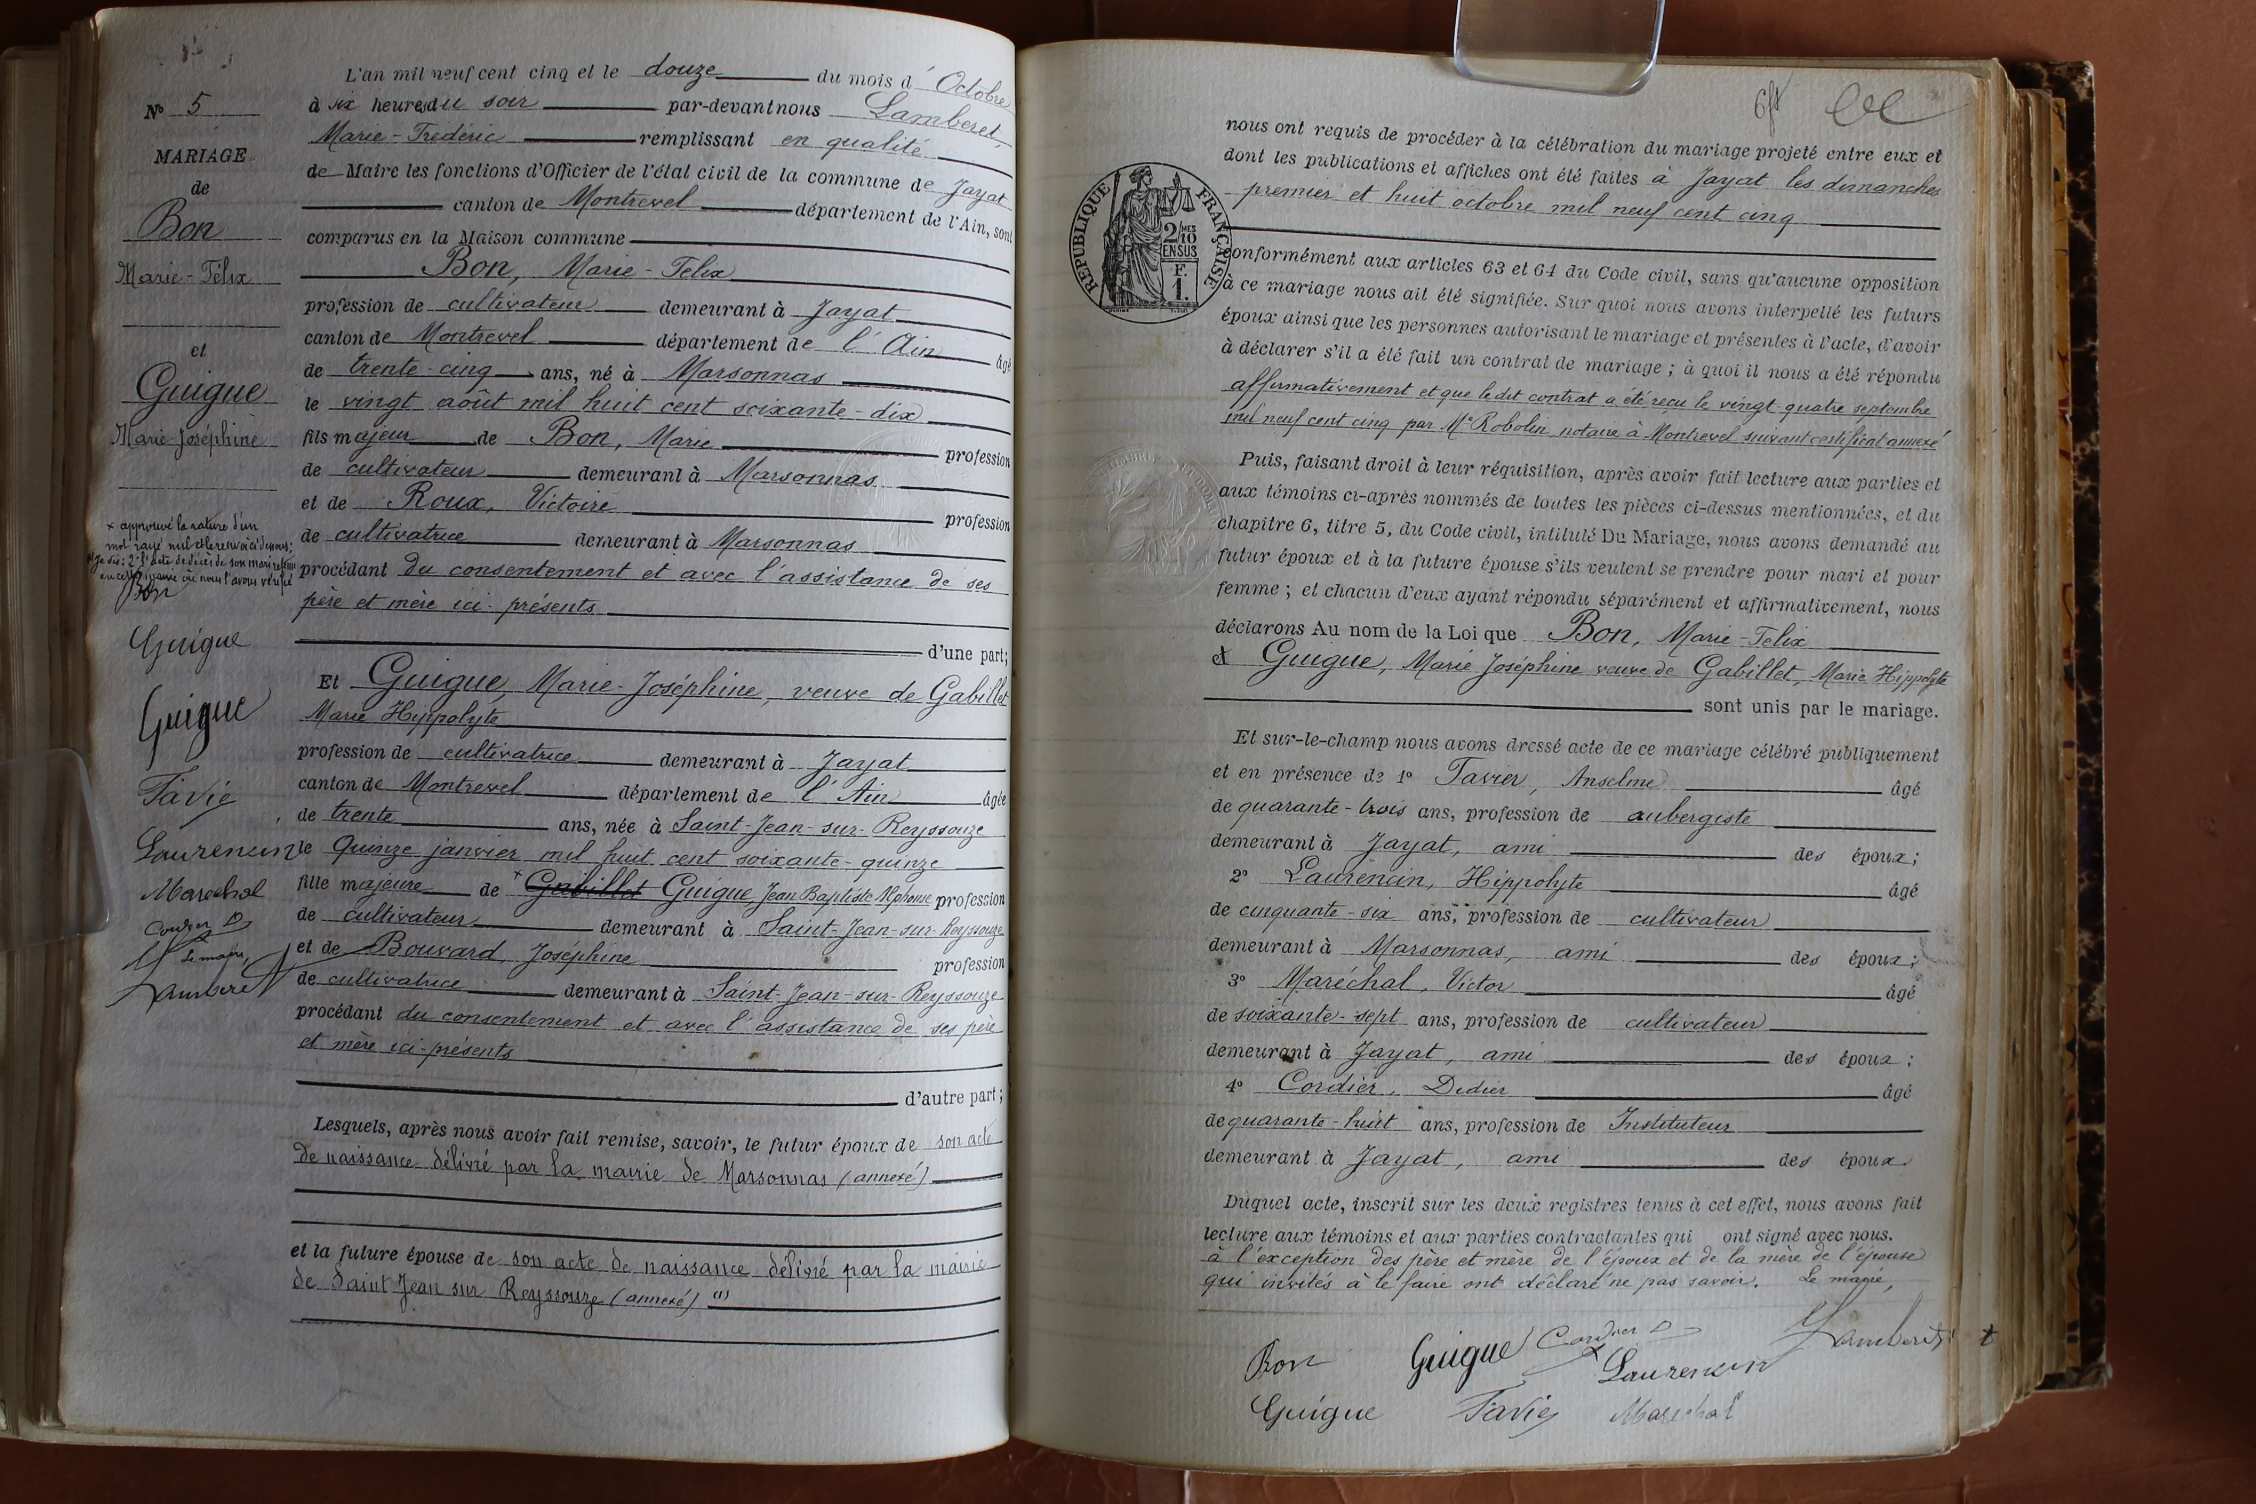 L'an mil neuf cent cinq et le douze du mois d'Octobre
à six heures du soir par-devant nous Lamberet,
Marie-Frédéric remplissant en qualité
de Maire les fonctions d'Officier de l'état civil de la commune de Jayat
canton de Montrevel département de l'Ain, sont
comparus en la Maison commune
Bon, Marie-Felix
profession de cultivateur demeurant à Jayat
canton de Montrevel département de l'Ain âgé
de trente-cinq ans, né à Marsonnas
le vingt août mil huit cent soixante-dix
fils majeur de Bon, Marie profession
de cultivateur demeurant à Marsonnas
et de Roux, Victoire profession
de cultivatrice demeurant à Marsonnas
procédant du consentement et avec l'assistance de ses
père et mère ici-présents
d'une part;
Et Guigue Marie-Joséphine, veuve de Gabillet
Marie Hyppolyte
profession de cultivatrice demeurant à Jayat
canton de Montrevel département de l'Ain âgée
de trente ans, née à Saint-Jean-sur-Reyssouze
le quinze janvier mil huit cent soixante-quinze
fille majeure de x Gabillet Guigue, Jean Baptiste Alphonse profession
de cultivateur demeurant à Saint-Jean-sur-Reyssouze
et de Bouvard, Joséphine profession
de cultivatrice demeurant à Saint-Jean-sur-Reyssouze
procédant du consentement et avec l'assistance de ses père
et mère ici-présents
d'autre part;
Lesquels, après nous avoir fait remise, savoir, le futur époux de son acte
de naissance délivré par la mairie de Marsonnas (annexé)
et la future épouse de son acte de naissance délivré par la mairie
de Saint Jean sur Reyssouze (annexé) (1)
N° 5
MARIAGE
de
Bon
Marie-Félix
et
Guigue
Marie Joséphine
x approuvé la rature d'un
mot rayé nul et le renvoi ci-dessous;
(1) Je dis: 2° l'acte de décès de son mari
où nous l'avons vérifié
Bon
Guigue
Guigue
Favie
Laurencin
Marechal
Cordier D
Le maire,
Lamberet
nous ont requis de procéder à la célébration du mariage projeté entre eux et
dont les publications et affiches ont été faites à Jayat les dimanches
premier et huit octobre mil neuf cent cinq
RÉPUBLIQUE FRANÇAISE
2/10MES
EN SUS
F.
1.
conformément aux articles 63 et 64 du Code civil, sans qu'aucune opposition
à ce mariage nous ait été signifiée. Sur quoi nous avons interpellé les futurs
époux ainsi que les personnes autorisant le mariage et présentes à l'acte, d'avoir
à déclarer s'il a été fait un contrat de mariage; à quoi il nous a été répondu
affirmativement et que le dit contrat a été reçu le vingt-quatre septembre
mil neuf cent cinq par Me Robolin notaire à Montrevel suivant certificat annexé
Puis, faisant droit à leur réquisition, après avoir fait lecture aux parties et
aux témoins ci-après nommés de toutes les pièces ci-dessus mentionnées, et du
chapitre 6, titre 5, du Code civil, intitulé Du Mariage, nous avons demandé au
futur époux et à la future épouse s'ils veulent se prendre pour mari et pour
femme; et chacun d'eux ayant répondu séparément et affirmativement, nous
déclarons Au nom de la Loi que Bon, Marie-Felix
et Guigue, Marie Joséphine veuve de Gabillet, Marie Hippolyte
sont unis par le mariage.
Et sur-le-champ nous avons dressé acte de ce mariage célébré publiquement
et en présence de 1° Favier, Anselme âgé
de quarante-trois ans, profession de aubergiste
demeurant à Jayat, ami des époux;
2° Laurencin, Hippolyte âgé
de cinquante-six ans, profession de cultivateur
demeurant à Marsonnas, ami des époux;
3° Maréchal, Victor âgé
de soixante-sept ans, profession de cultivateur
demeurant à Jayat, ami des époux;
4° Cordier, Didier âgé
de quarante-huit ans, profession de Instituteur
demeurant à Jayat, ami des époux
Duquel acte, inscrit sur les deux registres tenus à cet effet, nous avons fait
lecture aux témoins et aux parties contractantes qui ont signé avec nous.
à l'exception des père et mère de l'époux et de la mère de l'épouse
qui invités à le faire ont déclaré ne pas savoir. Le maire,
Bon Guigue Cordier D Lamberet
Laurencin
Guigue Favie Marechal